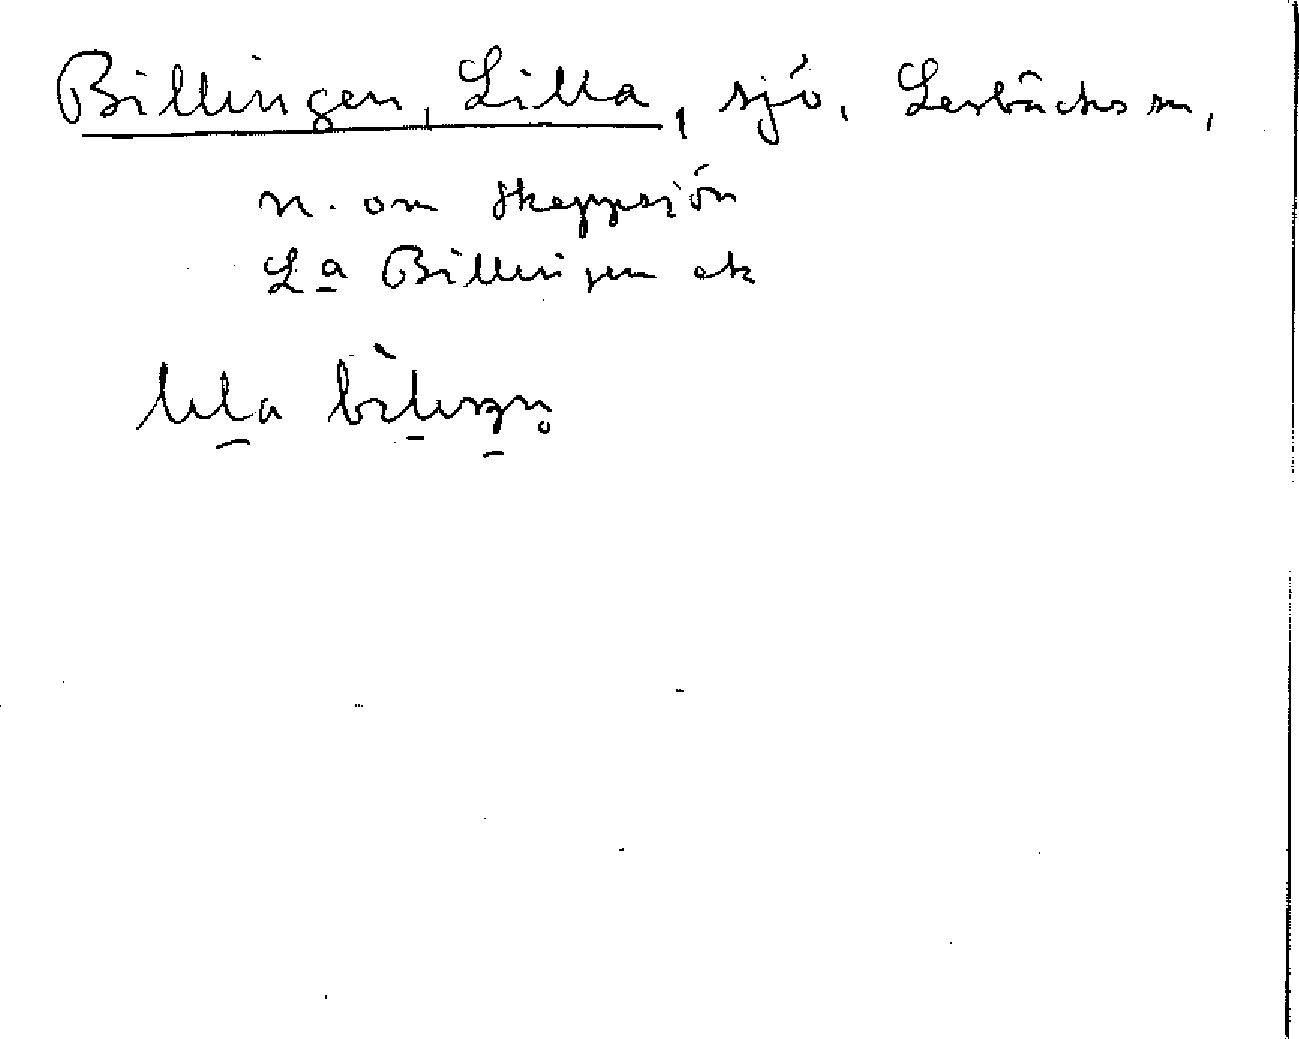 Billingen, Lilla, sjö, Lerbäcks sn,
n. om Skeppsjön
La Billingen ek
lıla bìlıŋən